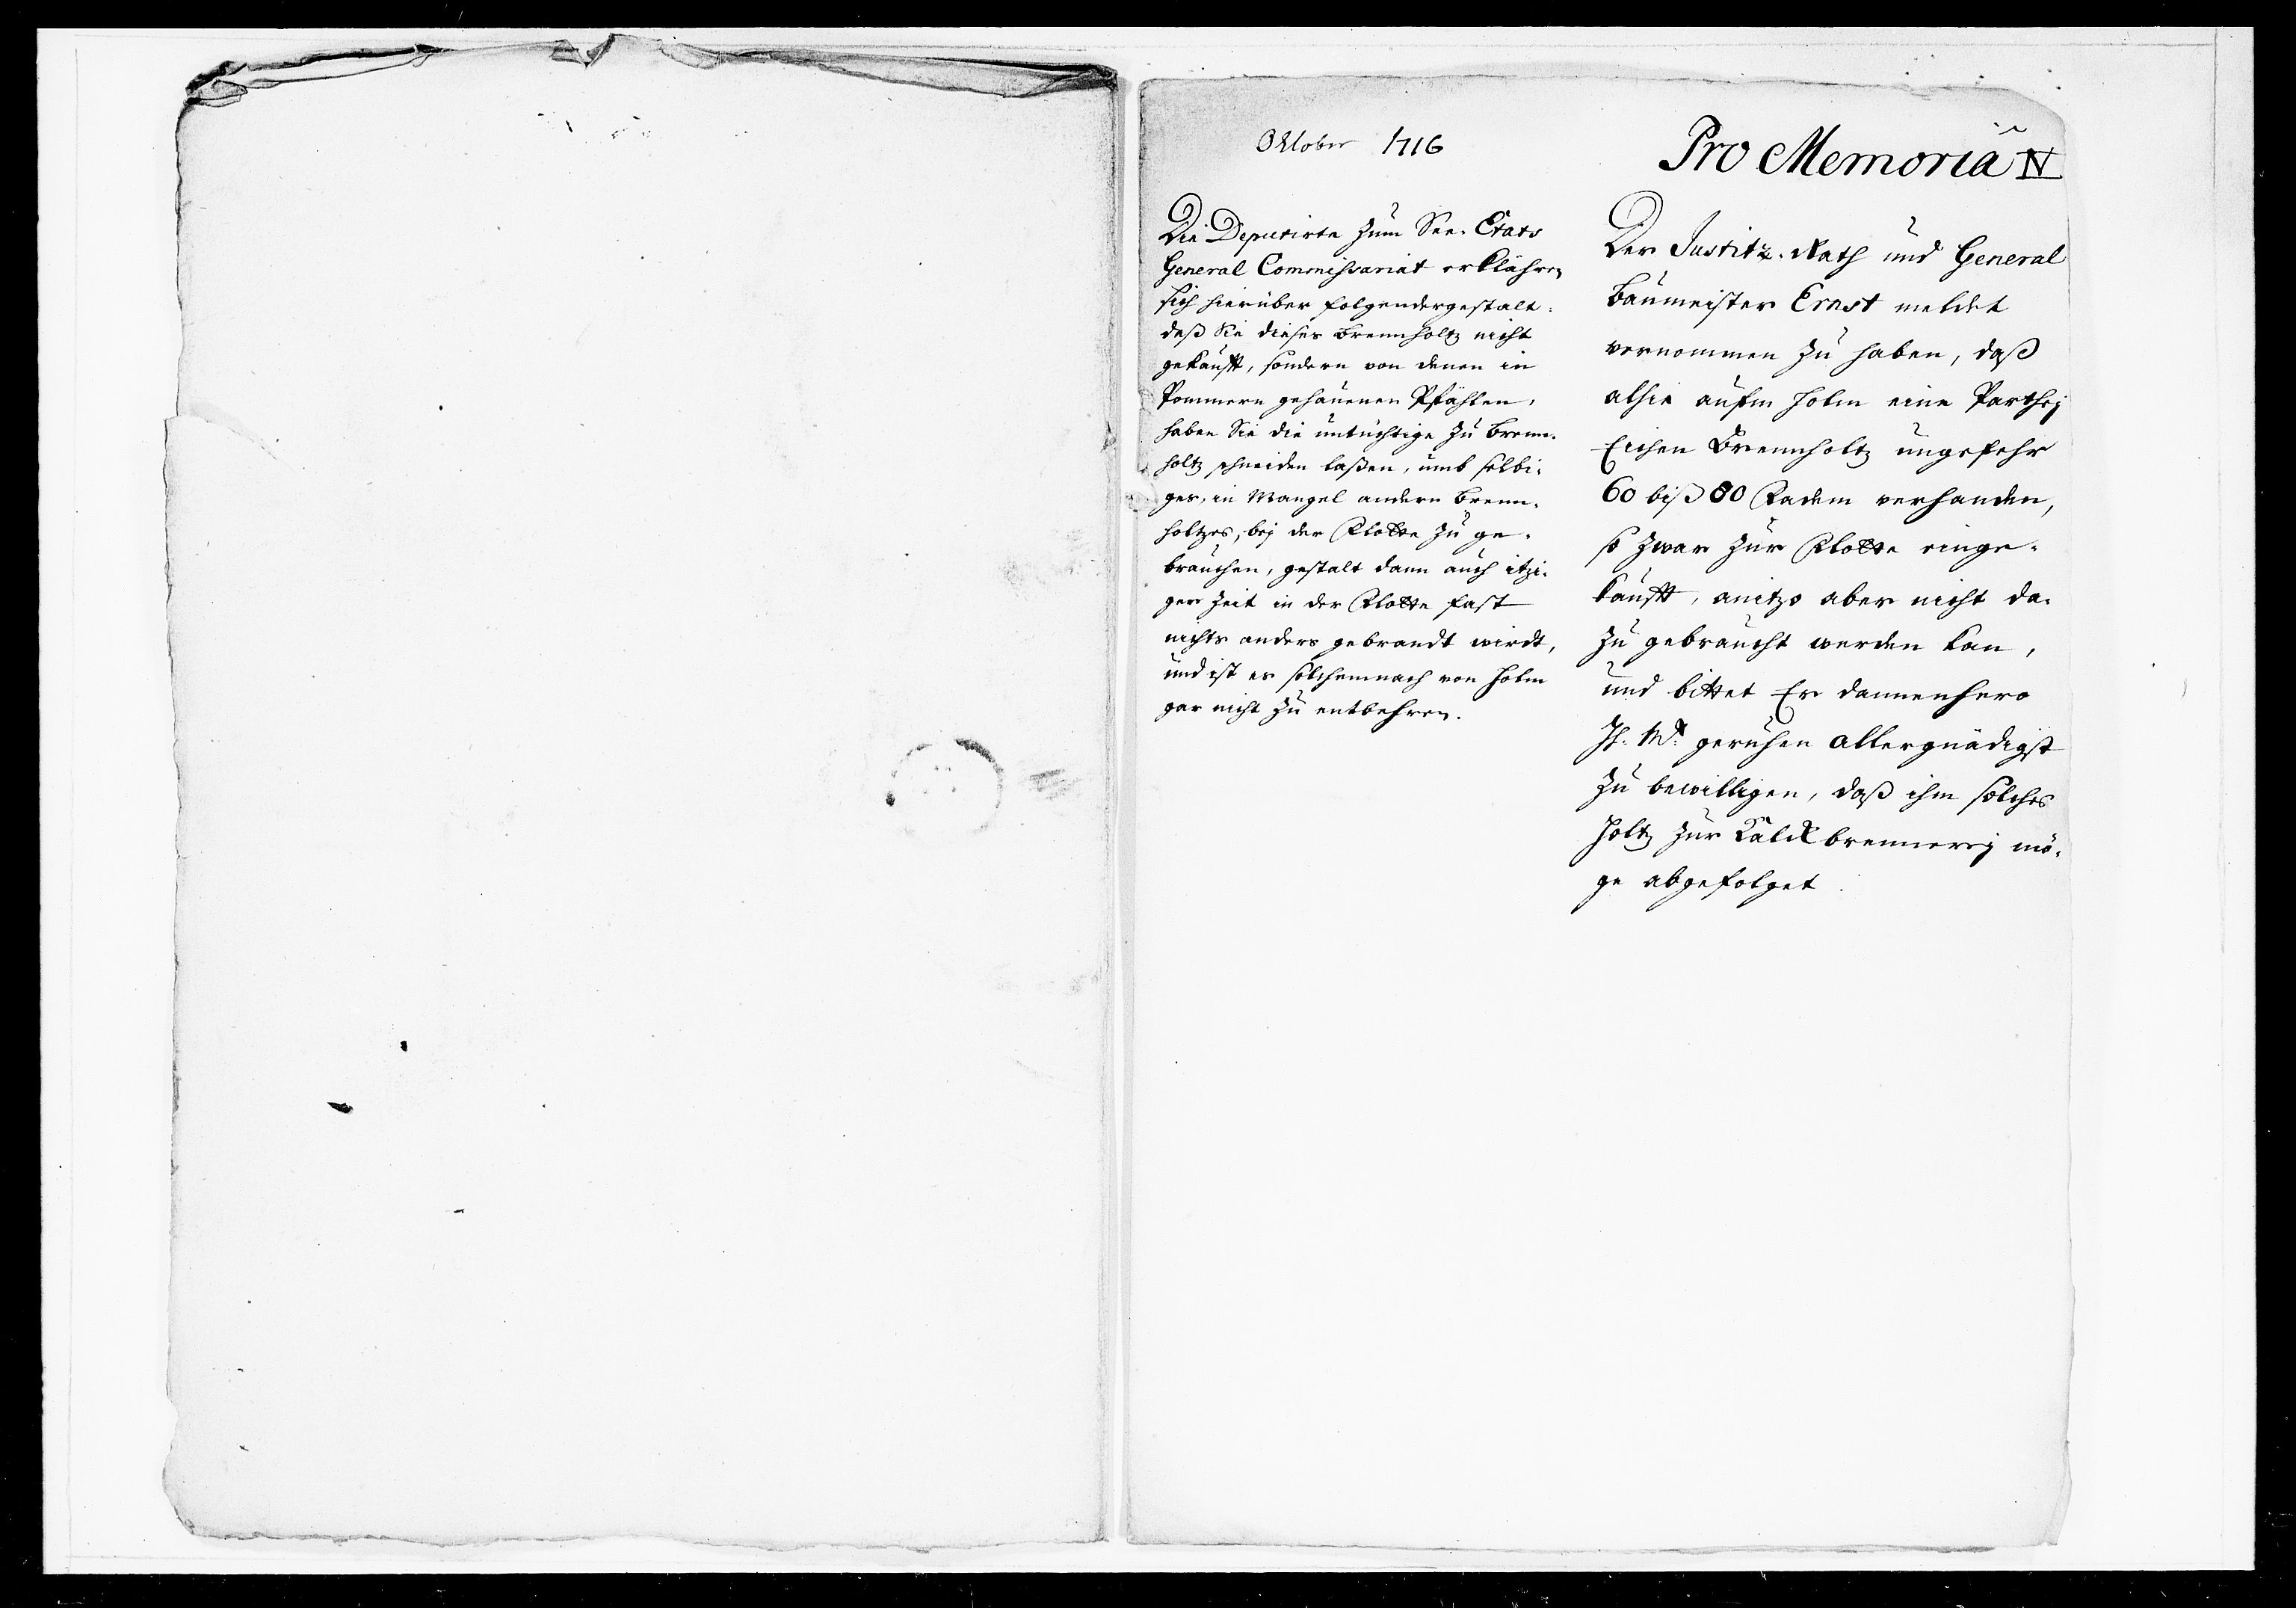 Oktober 1716
Die Deputirte zum See-Etats
General Commissariat erklähren
sich hierüber folgendergestalt:
daß Sie dieses Brennholtz nicht
gekaufft, sondern von denen in
Pommern gehauenen Pfählen,
haben Sie die untüchtige zu Brenn-
holtz schneiden laßen, umb selbi-
ges, in Mangel andern Brenn-
holtzes, bej der Flotte zu ge-
brauchen, gestalt dann auch itzi-
ger Zeit in der Flotte fast
nichts anders gebrandt wirdt,
und ist es solchemnach von Holm
gar nicht zu entbehren.
Pro Memoria N
Der Justitz-Rath und General
Baumeister Ernst meldet
vernommen zu haben, daß
alhie aufm Holm eine Parthej
Eichen Brennholtz ungefehr
60 biß 80 Fadem verhanden,
so zwar zur Flotte einge-
kaufft, anitzo aber nicht da-
zu gebraucht werden kan,
und bittet Er dannenhero
Ih. Mt. geruhen allergnädigst
zu bewilligen, daß ihm solches
Holtz zur Kalckbrennerej mö-
ge abgefolget